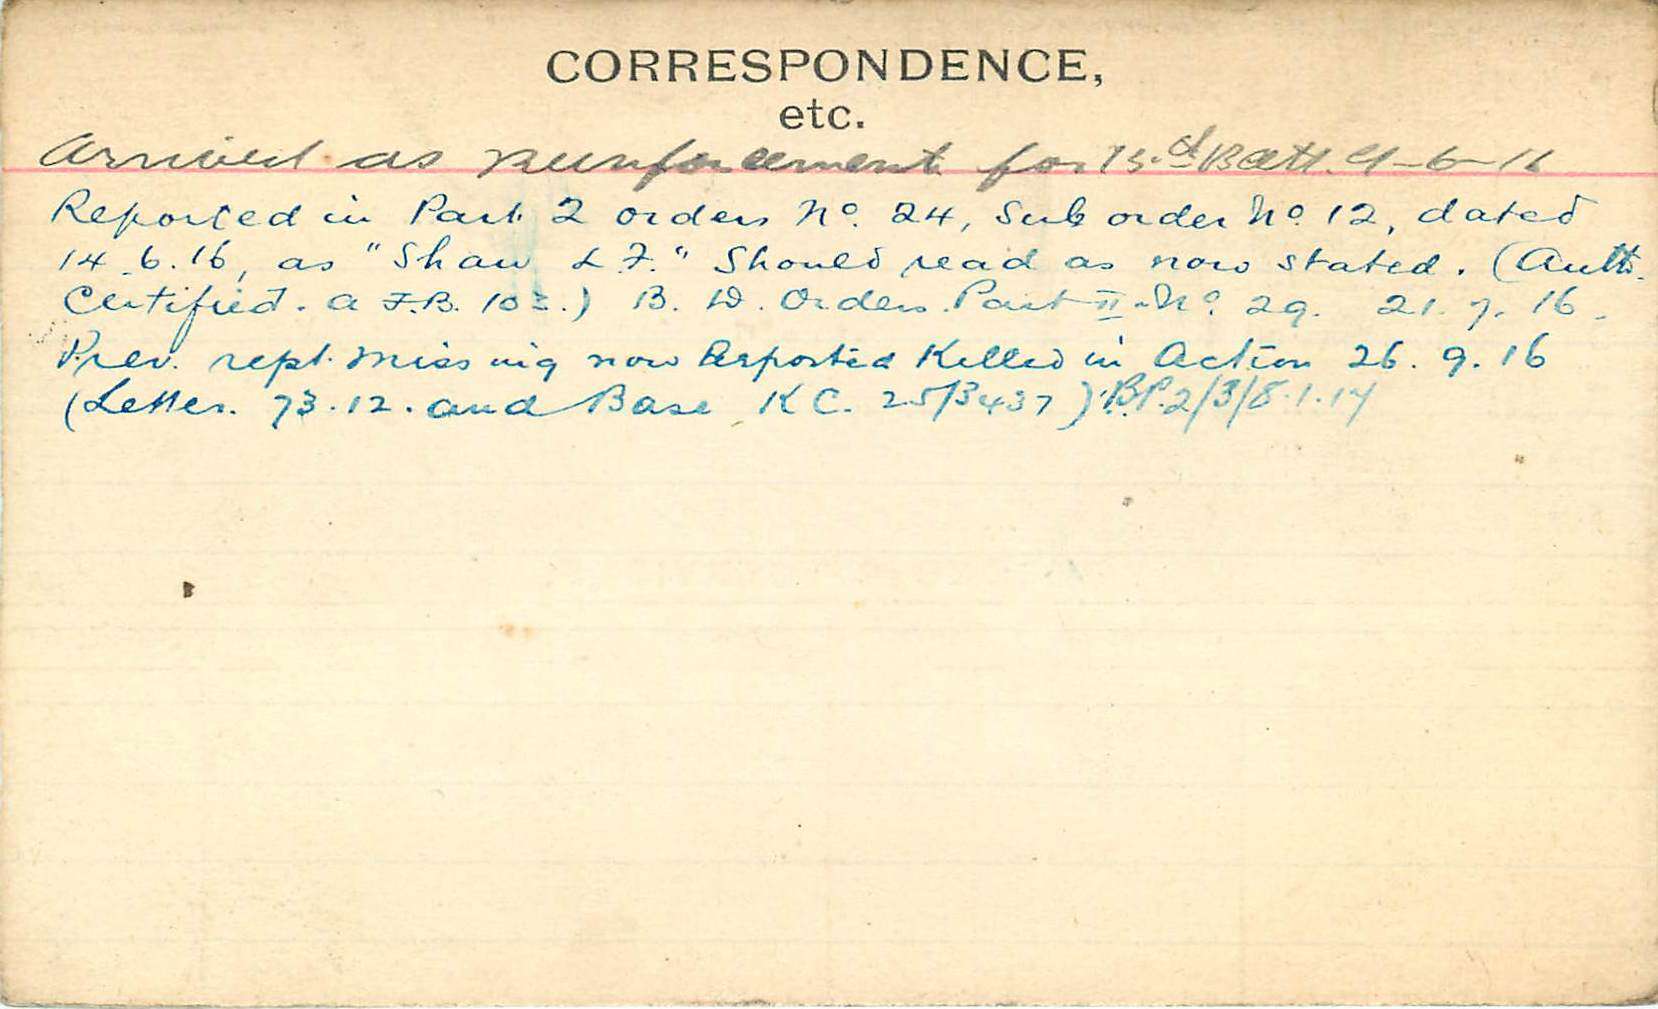 CORRESPONDENCE,
etc.
Arrived as reinforcement for 13.d Batt. 9-6-16
Reported in Part 2 orders No. 24, Sub order No 12, dated
14.6.16, as "Shaw L.F." Should read as now stated. (Auth.
Certified. A.F.B. 103.) B. D. Orders. Part II No. 29. 21.7.16.
Prev. rept. missing now Reported Killed in Action 26.9.16
(Letter. 73.12. and Base K C. 25/3437) B.P.2/3/8.1.17